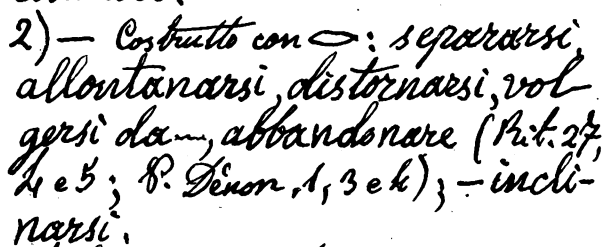 2) — Costrutto con 𓂋: separarsi,
allontanarsi, distornarsi, vol-
gersi da..., abbandonare (Rit. 27,
4 e 5; P. Dénon, 1, 3 e 4); — incli-
narsi.